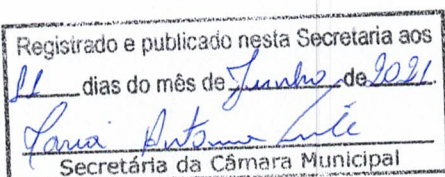 Registrado e publicado nesta Secretaria aos
11 dias do mês de Junho de 2021.
Secretária da Câmara Municipal